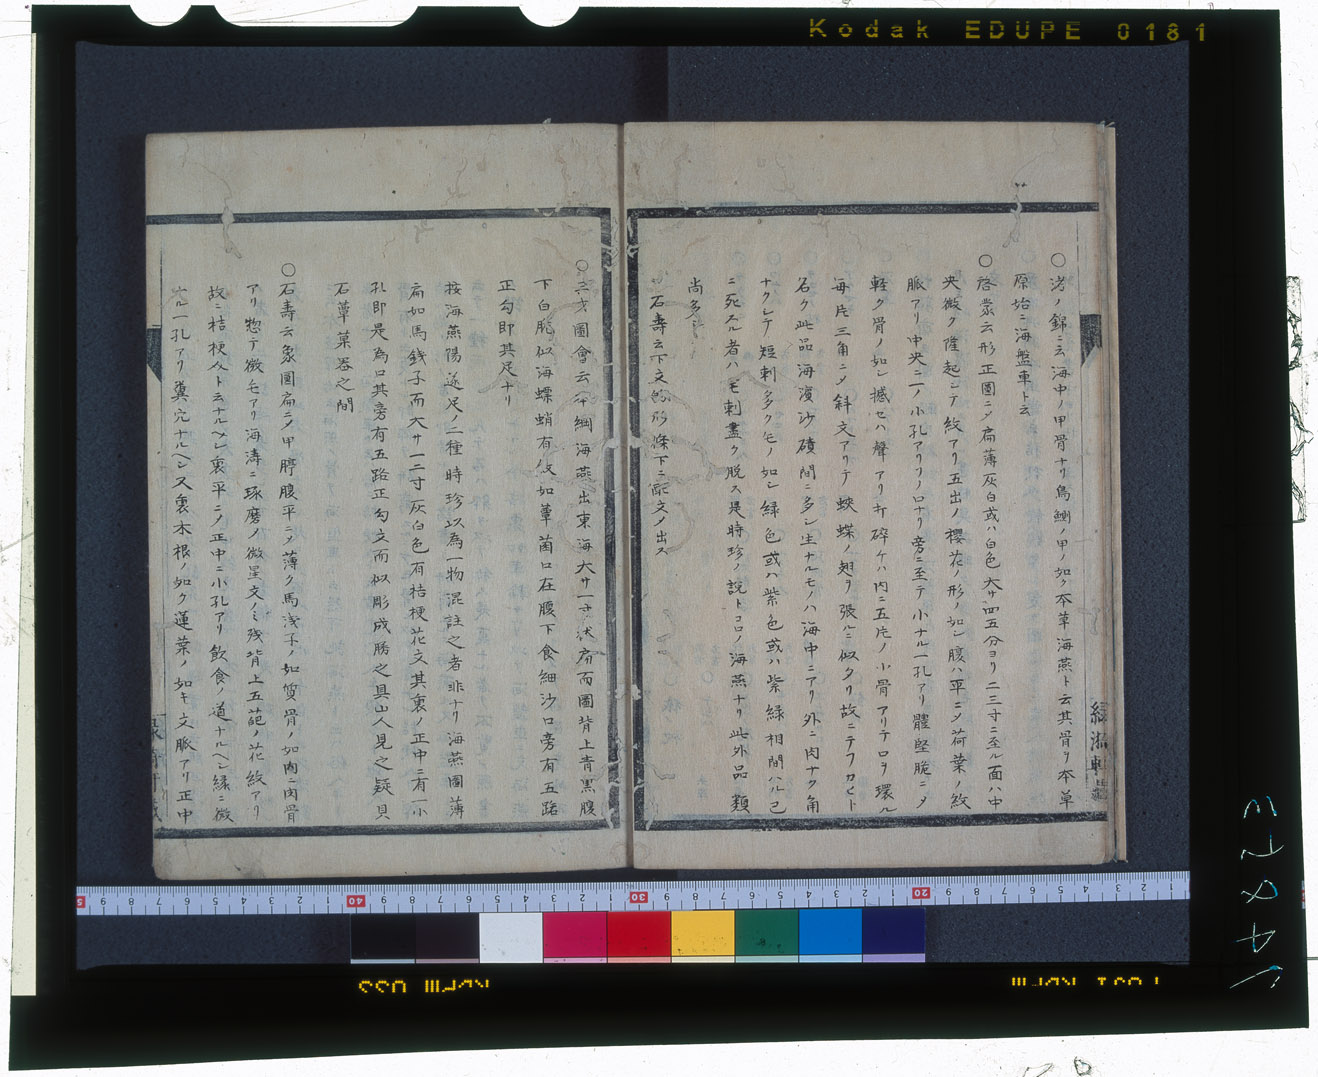 Kodak EDUPE 0181
○渚ノ錦ニ云海中ノ甲骨ナリ烏鰂ノ甲ノ如ク本草海燕ト云其骨ヲ本草
原始ニ海盤車ト云
○啓蒙云形正圓ニメ扁薄灰白或ハ白色大サ四五分ヨリ二三寸ニ至ル面ハ中
央微ク隆起シテ紋アリ五出ノ櫻花ノ形ノ如シ腹ハ平ニメ荷葉ノ紋
脈アリ中央ニ一ノ小孔アリノロナリ旁ニ至テ小ナル一孔アリ體堅脆ニメ
軽ク骨ノ如シ撼セハ聲アリ打碎ケハ内ニ五片ノ小骨アリテロヲ環ル
毎片三角ニメ斜文アリテ蛺蝶ノ翅ヲ張ルニ似タリ故ニテフカヒト
名ク此品海濱沙磧間ニ多シ生ナルモノハ海中ニアリ外ニ肉ナク角
ナクシテ短刺多ク毛ノ如シ緑色或ハ紫色或ハ紫緑相間ハル已
ニ死スル者ハ毛刺盡ク脱ス是時珍ノ説トコロノ海燕ナリ此外品類
尚多シ
石壽云下文ノ形條下ニ配文ノ出ス
○三才圖會云綱海燕出東海大サ一寸状扁而圓背上青黒腹
下白脆似海螵蛸有紋如蕈菌口在腹下食細沙口旁有五路
正勾即其足ナリ
按海燕陽遂足ノ二種時珍以為一物混註之者非ナリ海燕圓薄
扁如馬銭子而大サ一二寸灰白色有桔梗花文其裏ノ正中ニ有一小
孔即是為口其旁有五路正勾文而似彫成勝之具山人見之疑貝
石蕈菓器之間
○石壽云象圓扁ニメ甲脖腹平ニメ薄ク馬浅子ノ如質骨ノ如肉ニ肉骨
アリ惣テ微毛アリ海濤ニ琢磨ノ微星文ノミ残背上五葩ノ花紋アリ
故ニ桔梗介ト云ナルヘシ裏平ニメ正中ニ小孔アリ飲食ノ道ナルヘシ縁ニ微
ナル一孔アリ糞穴ナルヘシ又裏木根ノ如ク蓮葉ノ如キ文脈アリ正中